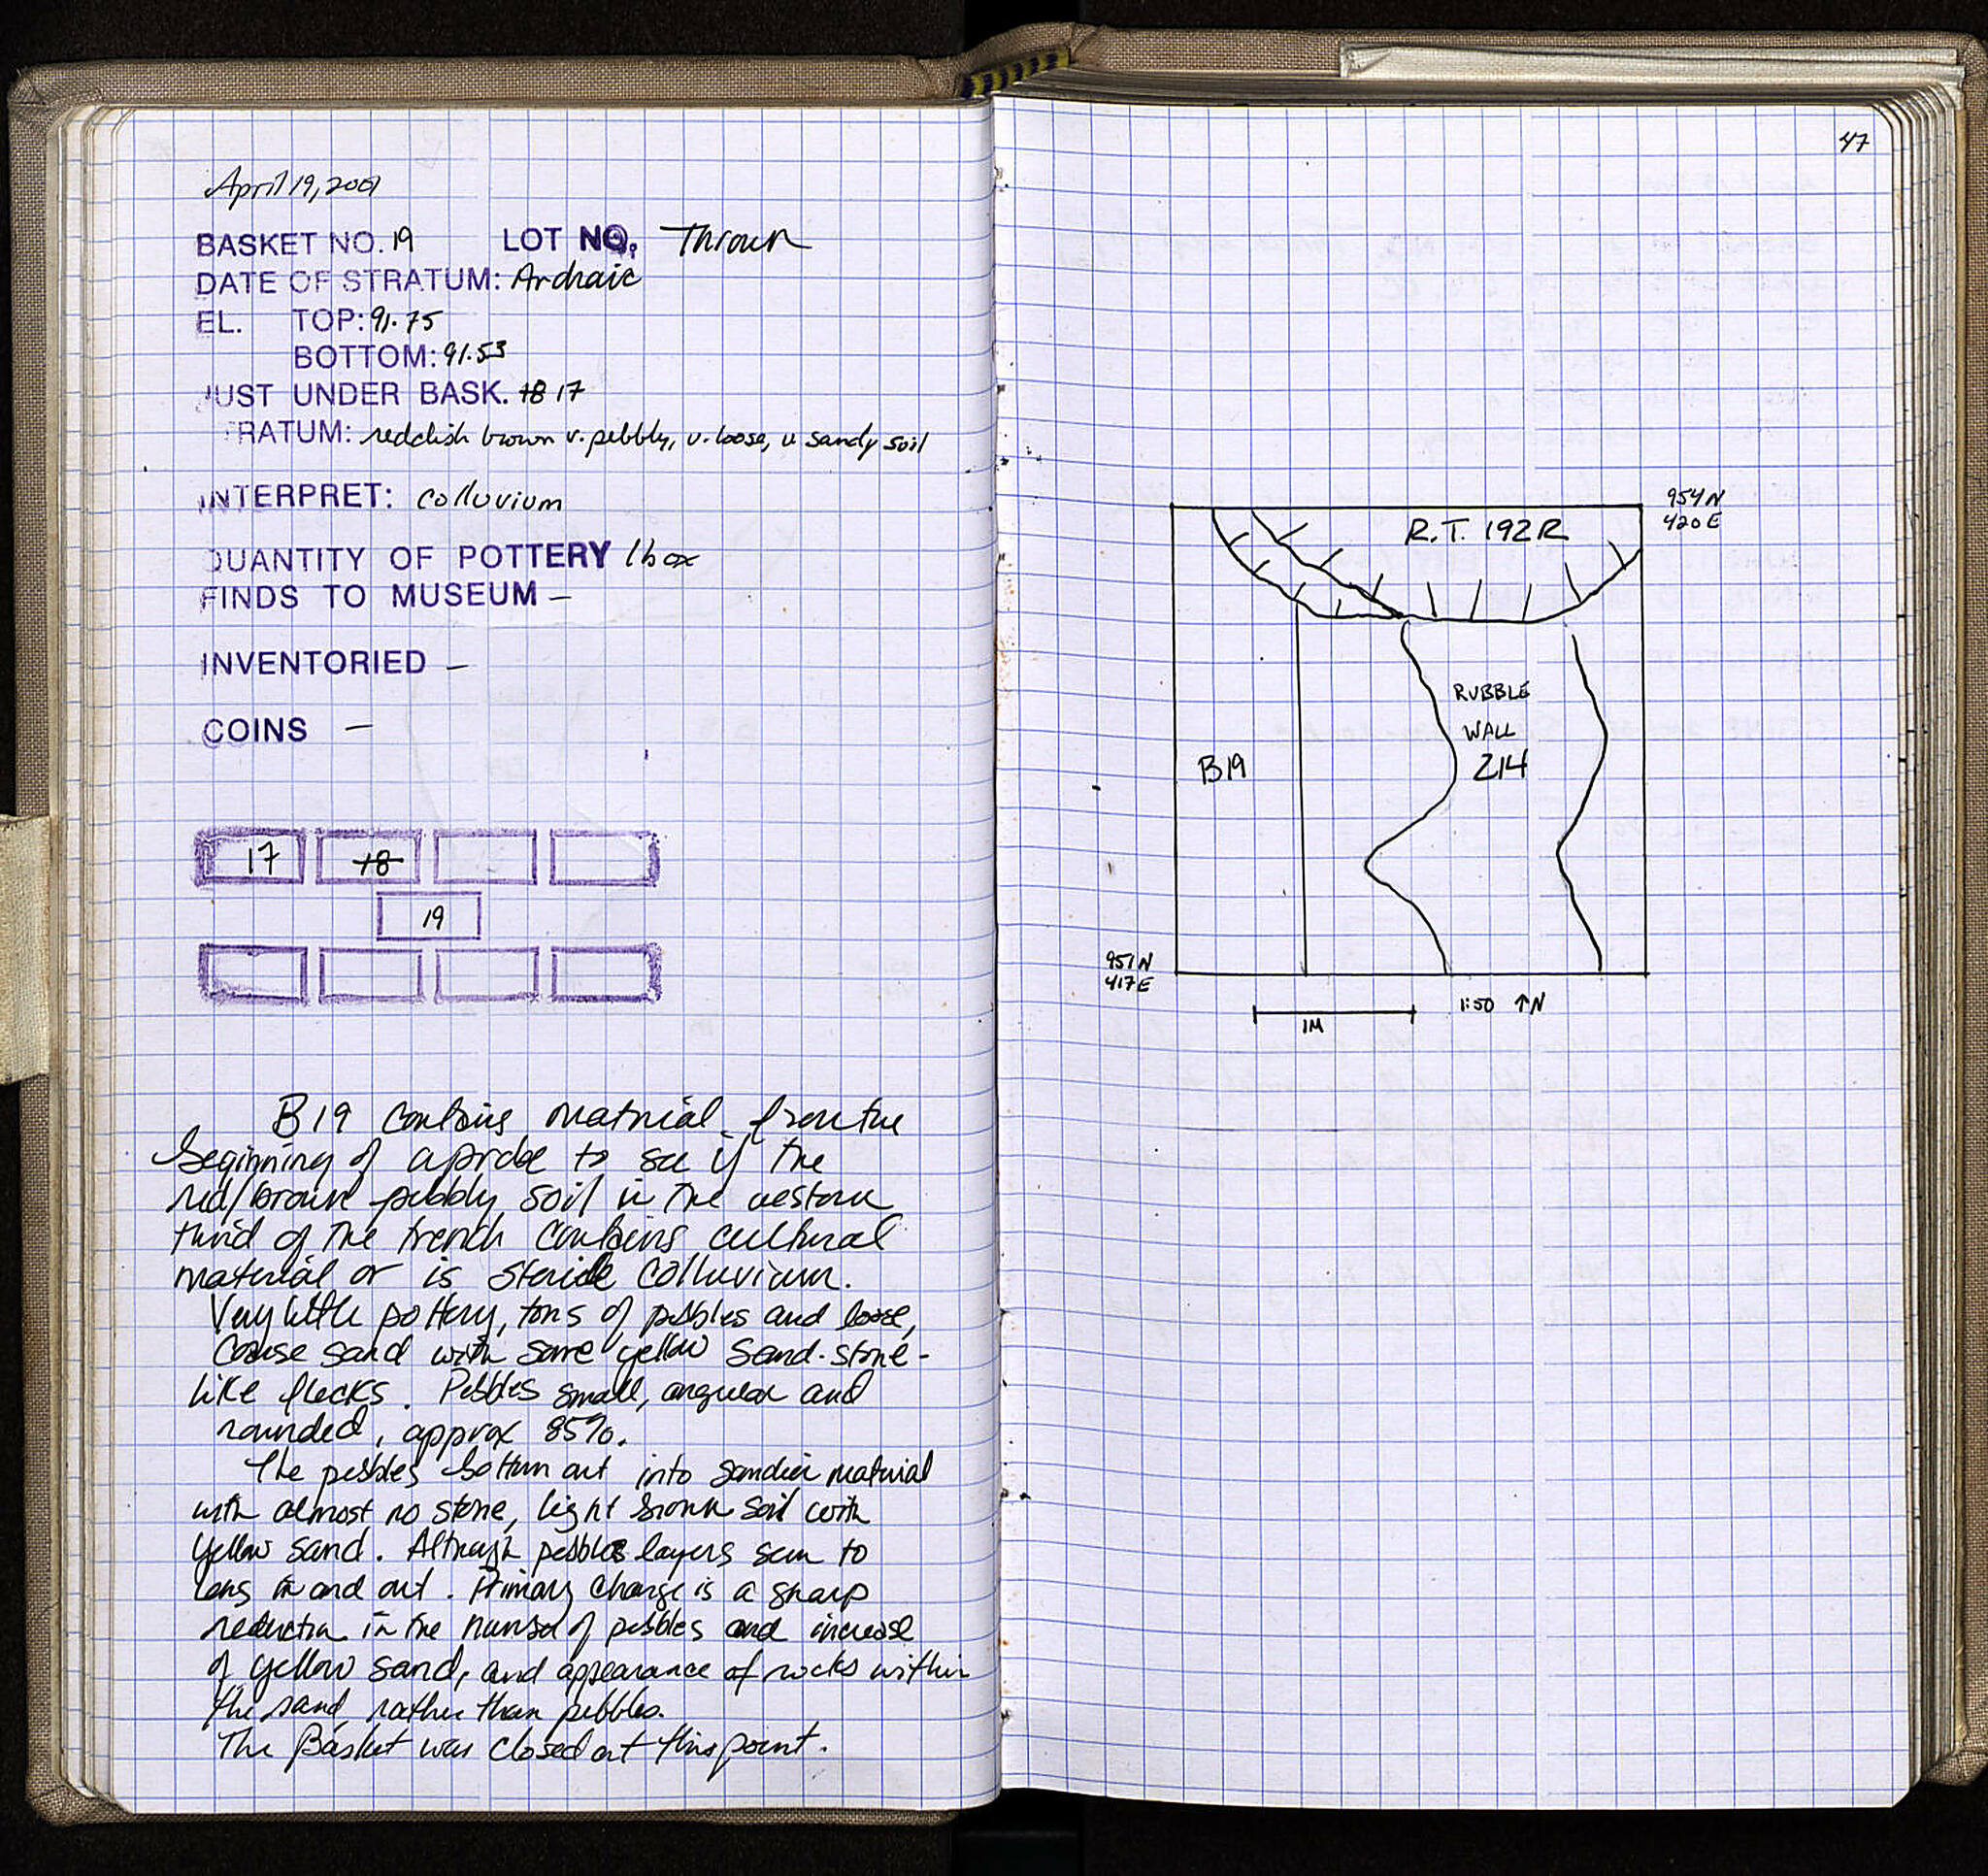 April 19, 2001
BASKET NO. 19 LOT NO. Thrown
DATE OF STRATUM: Archaic
EL. TOP: 91.75
BOTTOM: 91.53
JUST UNDER BASK. 18 17
RATUM: reddish brown v. pebbly, v. loose, v sandy soil
INTERPRET: colluvium
QUANTITY OF POTTERY 1 box
FINDS TO MUSEUM –
INVENTORIED –
COINS –
17 18
19
B19 contains material from the
beginning of a probe to see if the
red/brown pebbly soil in the western
third of the trench contains cultural
material or is sterile colluvium.
Very little pottery, tons of pebbles and loose,
coarse sand with some yellow sand-stone-
like flecks. Pebbles small, angular and
rounded, approx 85%.
The pebbles bottom out into sandier material
with almost no stone, light brown soil with
yellow sand. Although pebbles layers seem to
lens in and out. Primary change is a sharp
reduction in the number of pebbles and increase
of yellow sand, and appearance of rocks within
the sand rather than pebbles.
The Basket was closed at this point.
47
954 N
420 E
R.T. 192R
RUBBLE
WALL
214
B19
951 N
417 E
1:50 ↑N
1M